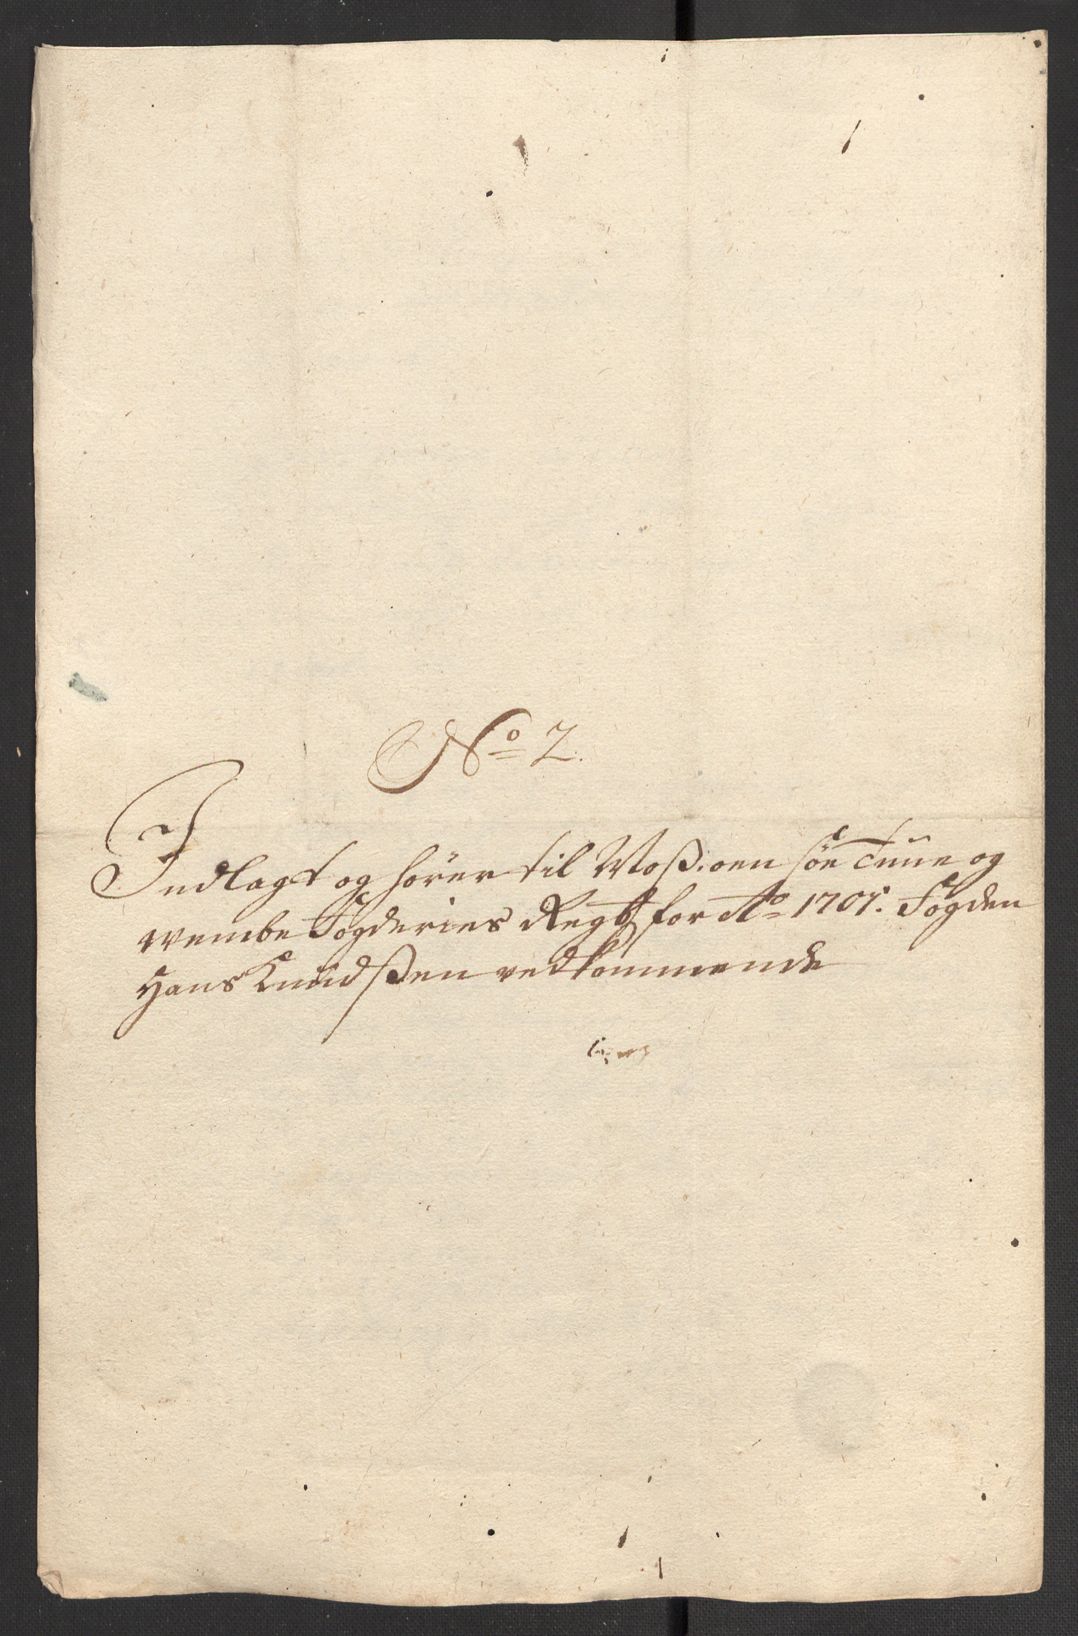 No 2.
Indlagt og hører til Moß: oen søe Tune og
wembe Fogderies Regsk for Ao 1701. Fogden
Hans Knudsßen vedkommende